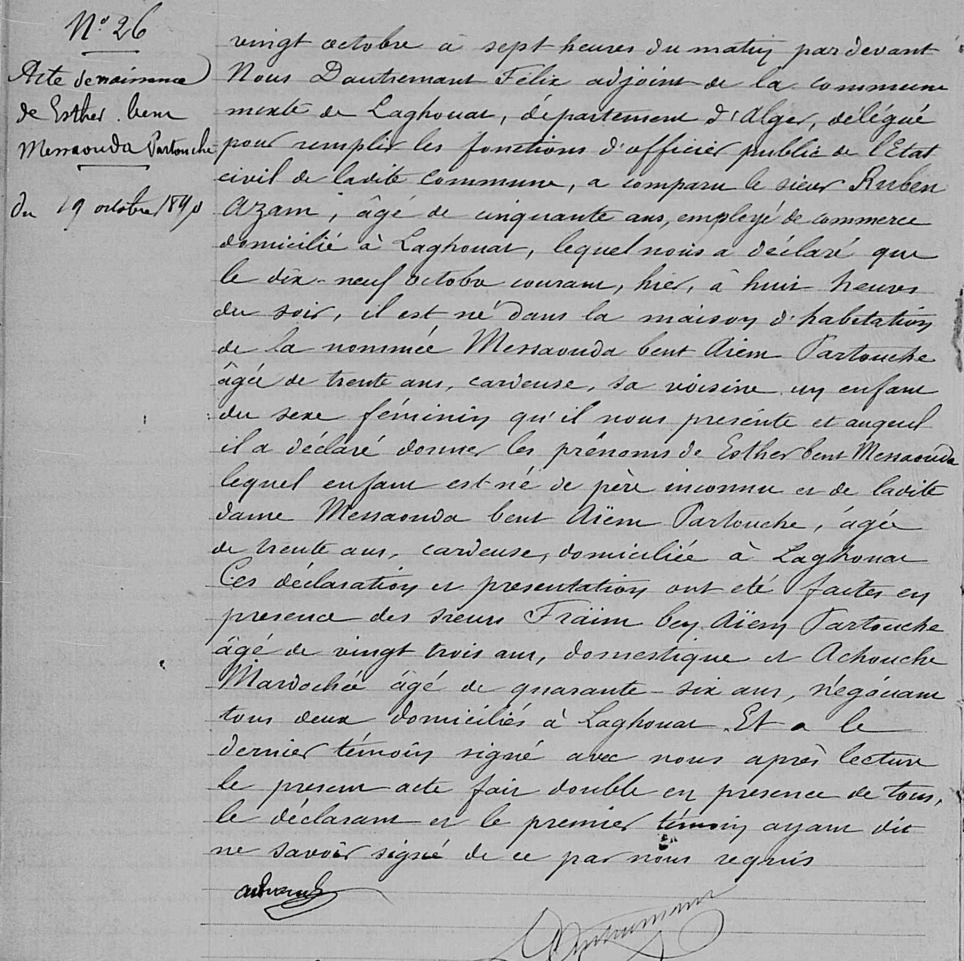 N° 26
Acte de naissance
de Esther bent
Messaouda Partouche
du 19 octobre 1890
vingt octobre à sept heures du matin par devant
Nous Dautremant Félix adjoint de la commune
mixte de Laghouat, département d'Alger, délégué
pour remplir les fonctions d'officier public de l'Etat
civil de ladite commune, a comparu le sieur Ruben
Azam, âgé de cinquante ans, employé de commerce
domicilié à Laghouat, lequel nous a déclaré que
le dix-neuf octobre courant, hier, à huit heures
du soir, il est né dans la maison d'habitation
de la nommée Messaouda bent Aïem Partouche
âgée de trente ans, cardeuse, sa voisine un enfant
du sexe féminin qu'il nous présente et auquel
il a déclaré donner les prénoms de Esther bent Messaouda
lequel enfant est né de père inconnu et de ladite
dame Messaouda bent Aïem Partouche, âgée
de trente ans, cardeuse, domiciliée à Laghouat
Ces déclaration et présentation ont été faites en
presence des sieurs Fraïm ben Aïem Partouche
âgé de vingt trois ans, domestique et Achouche
Mardochée âgé de quarante-six ans, négociant
tous deux domiciliés à Laghouat. Et a le
dernier témoin signé avec nous après lecture
le present acte fait double en presence de tous,
le déclarant et le premier témoin ayant dit
ne savoir signé de ce par nous requis